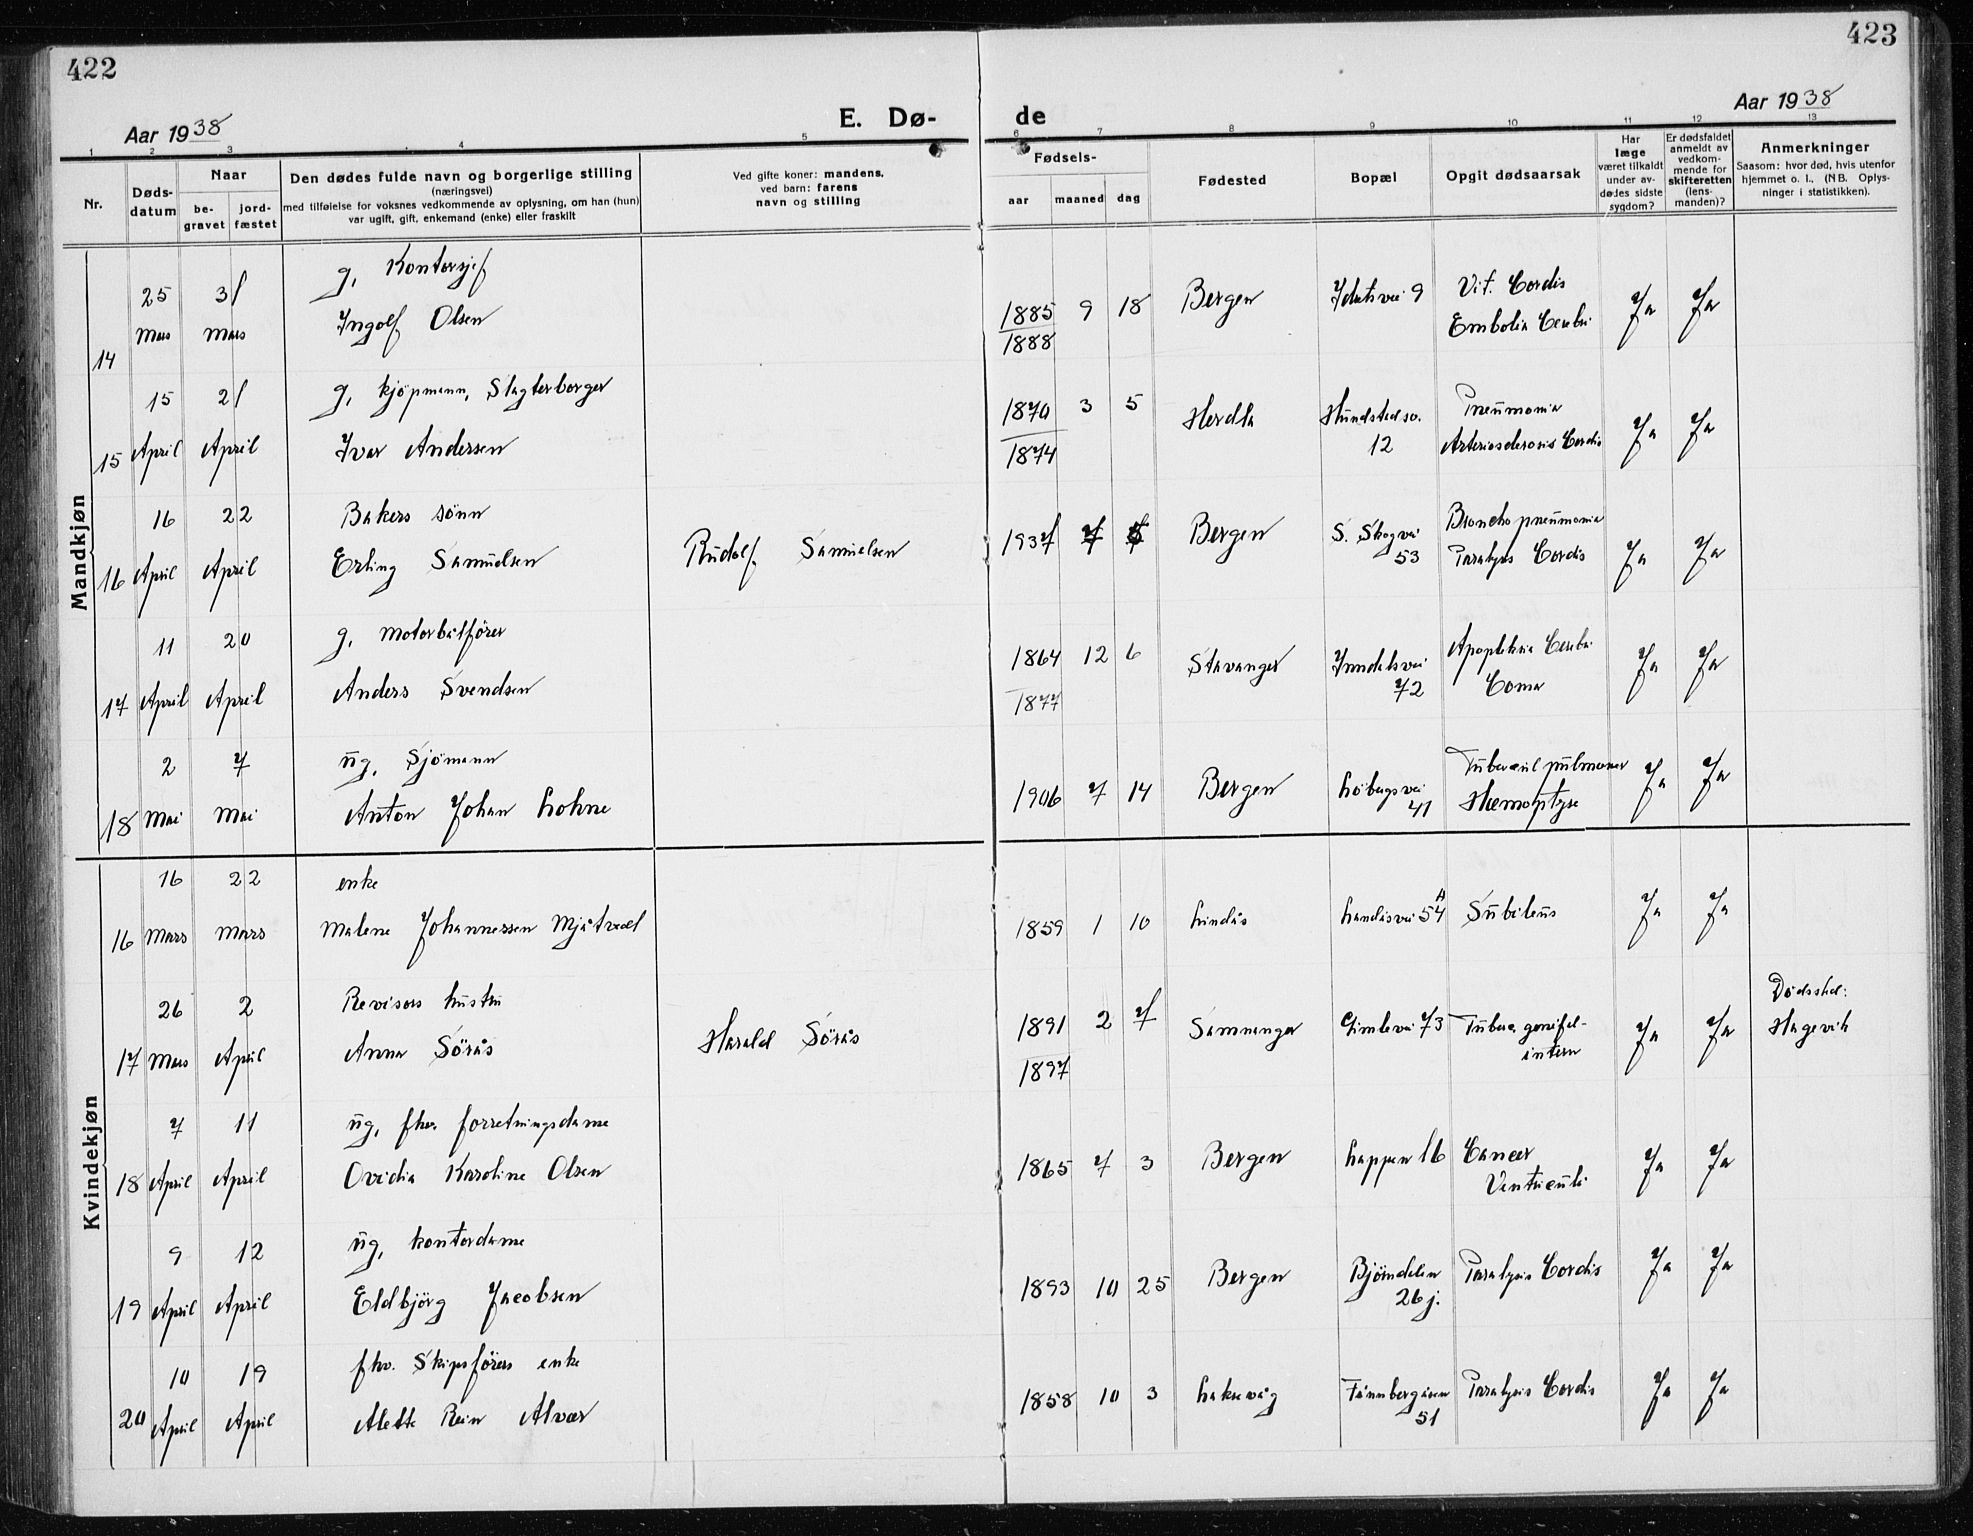 422
423
Aar 1938
E. Dø-
de
Aar 1938
1 2 3 4 5 6 7 8 9 10 11 12 13
Nr.
Døds-
datum
Naar
be-
gravet
jord-
fæstet
Den dødes fulde navn og borgerlige stilling
(næringsvei)
med tilføielse for voksnes vedkommende av oplysning, om han (hun)
var ugift, gift, enkemand (enke) eller fraskilt
Ved gifte koner: mandens,
ved barn: farens
navn og stilling
Fødsels-
aar maaned dag
Fødested
Bopæl
Opgit dødsaarsak
Har
læge
været tilkaldt
under av-
dødes sidste
sygdom?
Er dødsfaldet
anmeldt av
vedkom-
mende for
skifteretten
(lens-
manden)?
Anmerkninger
Saasom: hvor død, hvis utenfor
hjemmet o. l., (NB. Oplys-
ninger i statistikken).
Mandkjøn
25 31 g, Kontorsjef
14 Mars Mars Ingolf Olsen
1885 9 18 Bergen 9 Vit. Cordis Ja Ja
1888 Embolia Cerebri
15 21 g, kjöpmann, Slagterborger
15 April April Ivar Andersen
1870 3 5 Herdla Hundstedsv. Pneumonia Ja Ja
1874 12 Arteriosclerosis Cordis
16 22 Bakers sönn
16 April April Erling Samuelsen Rudolf Samuelsen
1937 Bergen S. Skogvei Bronchopneumonia Ja Ja
53 Paralysis Cordis
11 20 g, motorbåtförer
17 April April Anders Svendsen
1864 12 6 Stavanger Inndalsvei Apoplekia Cerebri Ja Ja
1877 72 Coma
2 7 ug, Sjömann
18 Mai Mai Anton Johan Lohne
1906 7 14 Bergen Löbergsvei Tubercul pulmoner Ja Ja
41 Hæmoptyse
Kvindekjøn
16 22 enke
16 Mars Mars Malene Johannessen Mjåtvedt
1859 1 10 Lindås Landåsvei 54 A Ja Ja
26 2 Revisors hustru
17 Mars April Anna Sörås Harald Sörås
1891 2 7 Samnanger Gimlevei 73 Tuberc. genital- Ja Ja Dödssted:
1897 intern Hagevik
7 11 ug, fhv. forretningsdame
18 April April Ovidia Karoline Olsen
1865 7 3 Bergen Lappen 16 Cancer Ja Ja
Ventriculi
9 12 ug, kontordame
19 April April Eldbjörg Jacobsen
1893 10 25 Bergen Björndalen Paralysis Cordis Ja Ja
26 j.
10 19 fhv. Skipsförers enke
20 April April Alette Rein Alvær
1858 10 3 Laksevåg Paralysis Cordis Ja Ja
51